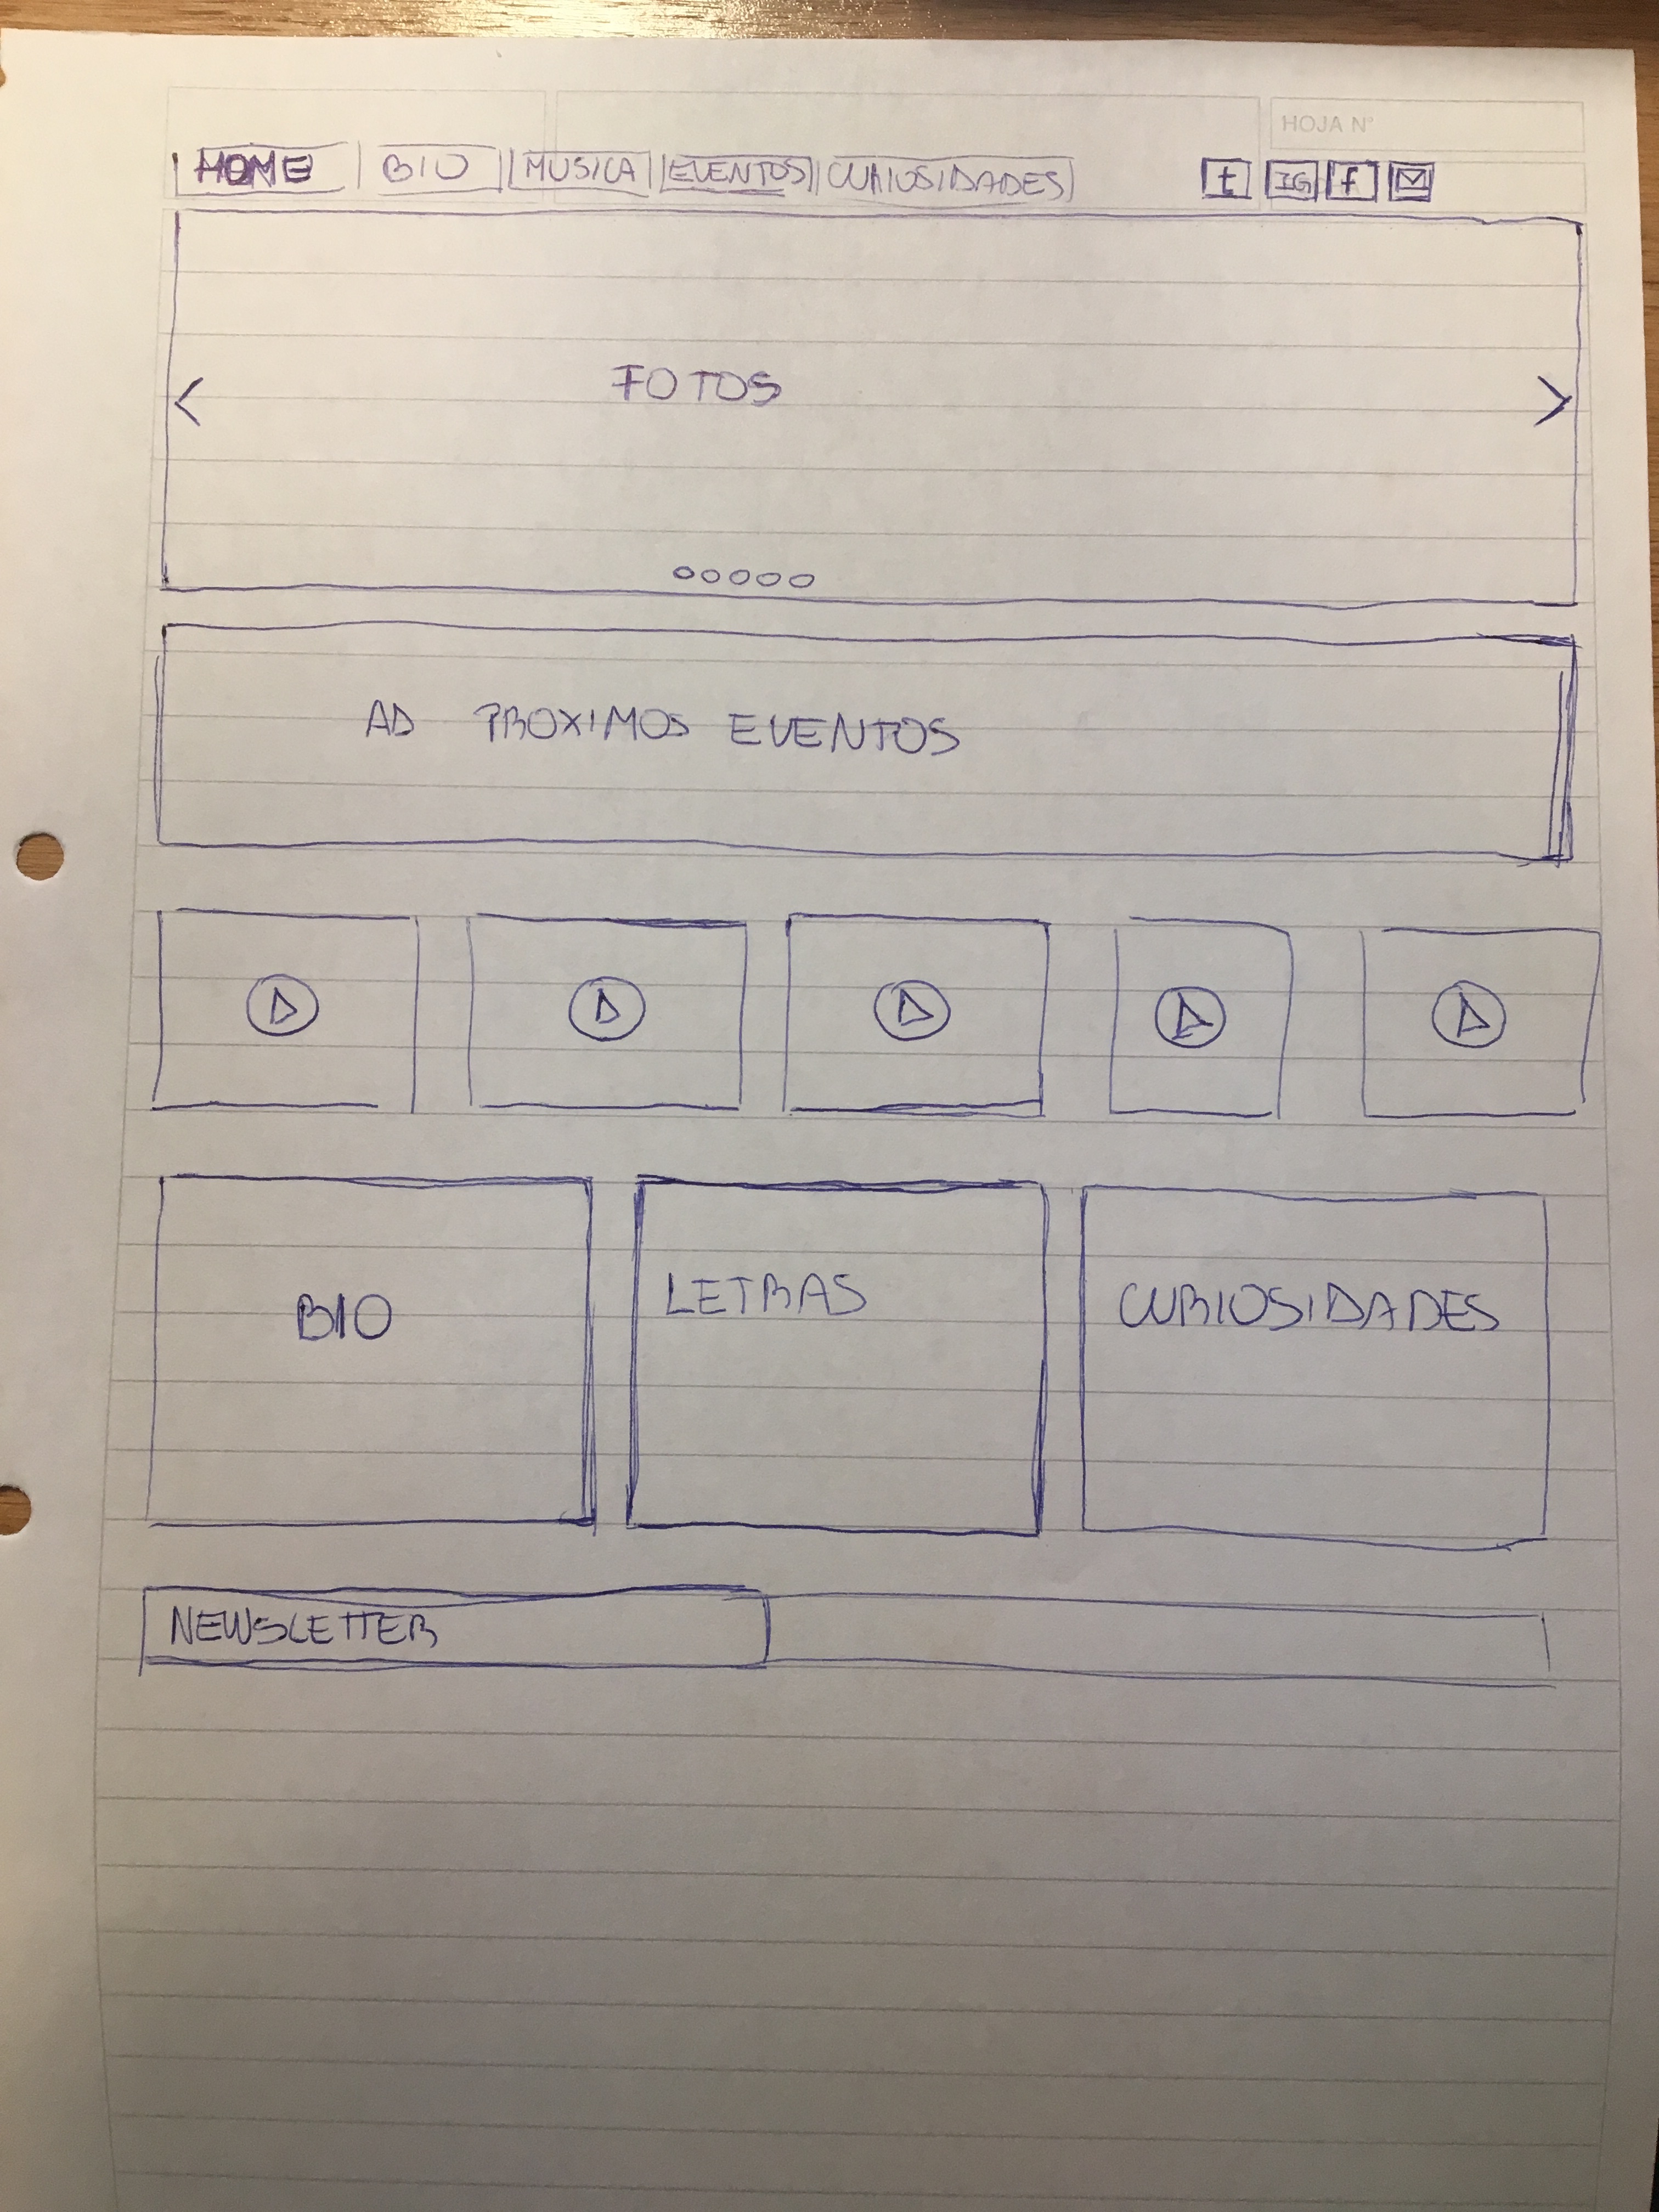 HOJA N°
HOME BIO MUSICA EVENTOS CURIOSIDADES t IG f
FOTOS
AD PROXIMOS EVENTOS
BIO LETRAS CURIOSIDADES
NEWSLETTER